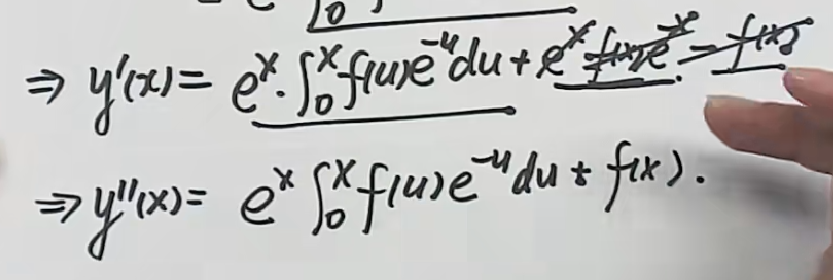 ⇒ y'(x) = e^x · ∫_0^x f(u)e^{-u}du + e^x f(x)e^{-x} = f(x)
⇒ y''(x) = e^x ∫_0^x f(u)e^{-u}du + f(x).